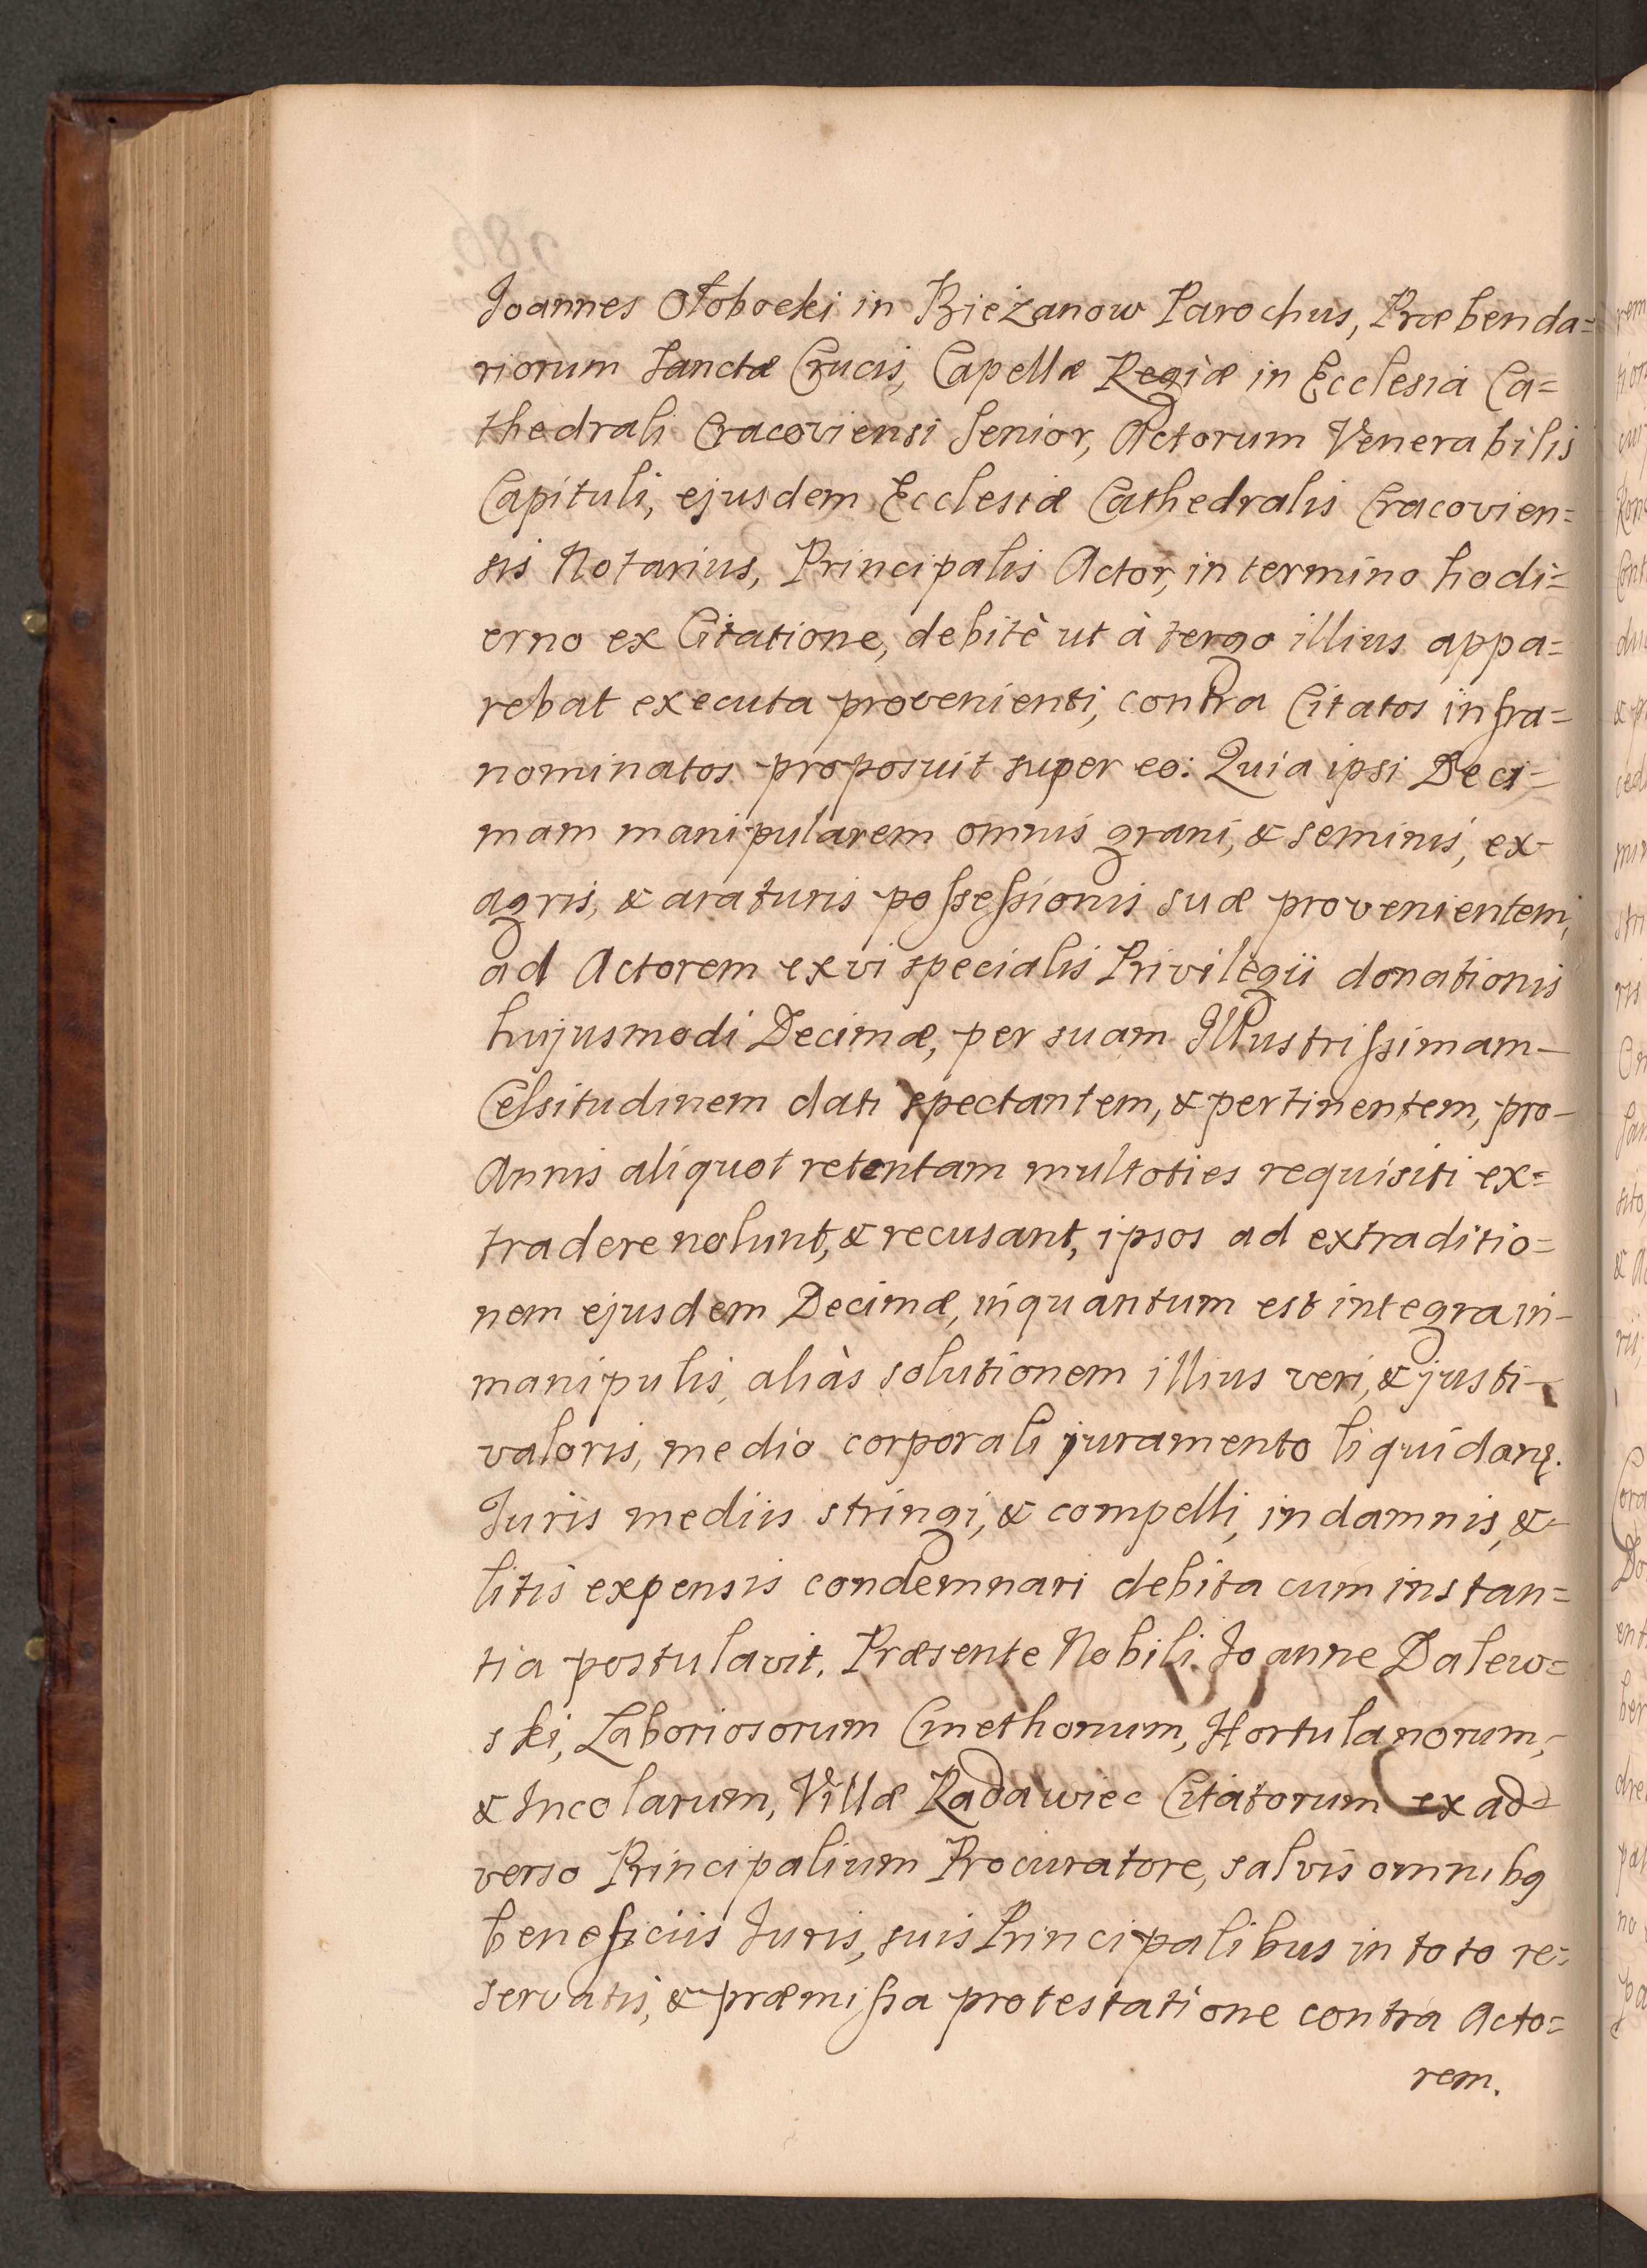 Joannes Otobocki in Bieżanow Parochus, Præbenda=
riorum Sanctæ Crucis, Capellæ Regiæ in Ecclesia Ca=
thedrali Cracoviensi Senior, Actorum Venerabilis
Capituli, ejusdem Ecclesiæ Cathedralis Cracovien=
sis Notarius, Principalis Actor, in termino hodi=
erno ex Citatione, debitè ut à tergo illius appa=
rebat executa provenienti, contra Citatos infra=
nominatos proposuit super eo: Quia ipsi Deci-
mam manipularem omnis grani, & seminis, ex
agris, & araturis possessionis suæ provenientem,
ad Actorem ex vi specialis Privilegii donationis
hujusmodi Decimæ, per suam Illustrissimam-
Celsitudinem dati spectantem, & pertinentem, pro-
Annis aliquot retentam multoties requisiti ex=
tradere nolunt, & recusant, ipsos ad extraditio=
nem ejusdem Decimæ, inquantum est integra in-
manipulis, aliàs solutionem illius veri, & justi-
valoris, medio corporali juramento liquidanę.
Juris mediis stringi, & compelli, in damnis, &-
litis expensis condemnari debita cum instan=
tia postulavit. Præsente Nobili Joanne Dalew=
ski, Laboriosorum Cmethonum, Hortulanorum,
& Incolarum, Villæ Radawiec Citatorum ex ad=
verso Principalium Procuratore, salvis omnibq
beneficiis Juris, suis Principalibus in toto re=
servatis, & præmissa protestatione contra Acto=
rem.